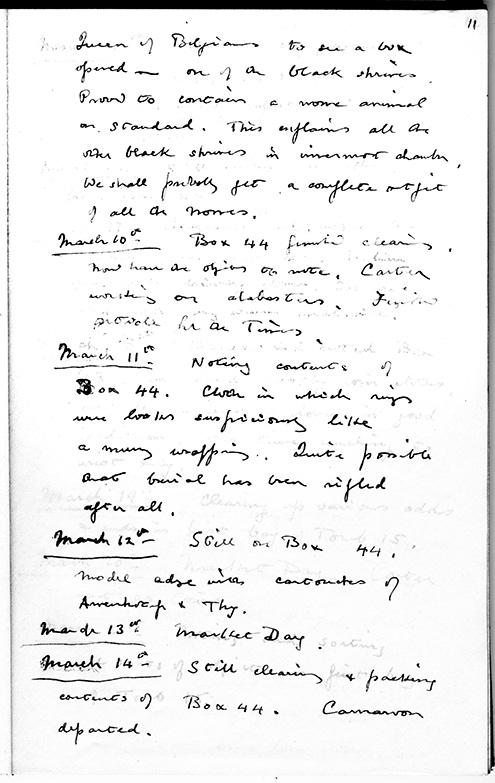 11
Queen of Belgians to see a box
opened — one of the black shrines.
Proved to contain a nome animal
on standard. This explains all the
other black shrines in innermost chamber.
We shall probably get a complete outfit
of all the nomes.
March 10th Box 44 finished clearing.
Now have the objects to note. Carter
working on alabasters. Finished
article for the Times
March 11th Noting contents of
Box 44. Cloth in which rings
were looks suspiciously like
a mummy wrapping. Quite possible
that burial has been rifled
after all.
March 12th Still on Box 44.
Model adze with cartouches of
Amenhotep & Thy.
March 13th Market Day.
March 14th Still clearing & packing
contents of Box 44. Carnarvon
departed.